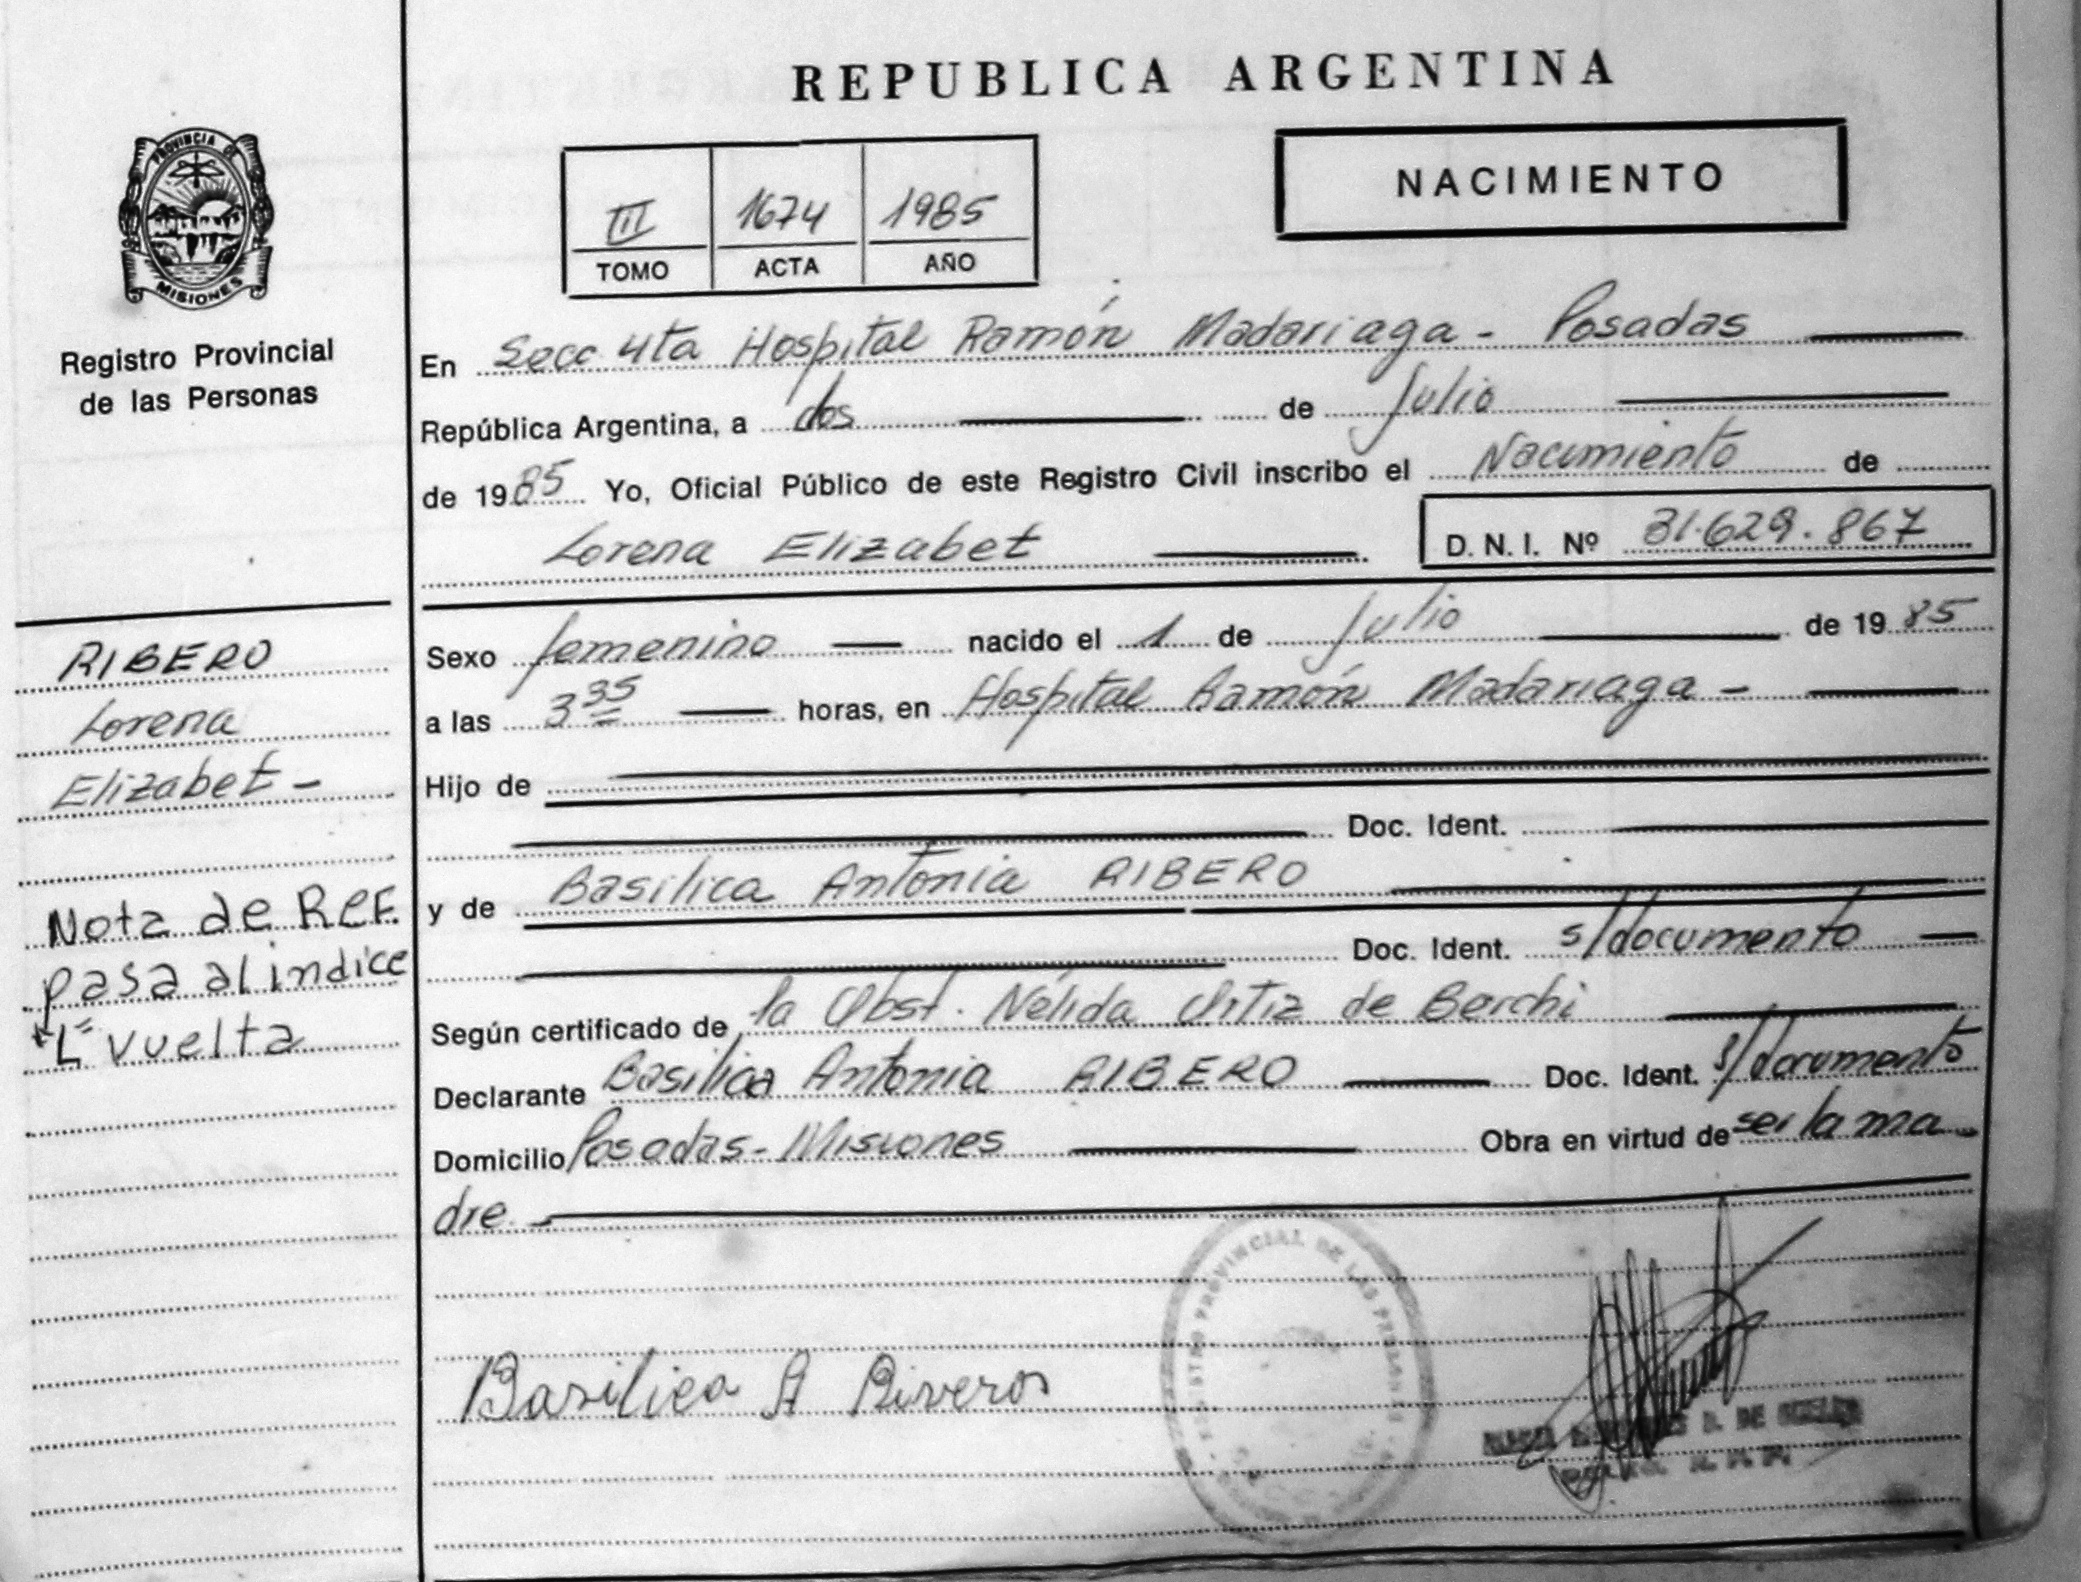 REPUBLICA ARGENTINA
PROVINCIA DE
MISIONES
Registro Provincial
de las Personas
III 1674 1985
TOMO ACTA AÑO
NACIMIENTO
En Secc 4ta Hospital Ramón Madariaga - Posadas
República Argentina, a dos de Julio
de 1985 Yo, Oficial Público de este Registro Civil inscribo el Nacimiento de
Lorena Elizabet D. N. I. Nº 31.629.867
RIBERO
Lorena
Elizabet -
Nota de REF.
pasa al indice
1ª vuelta
Sexo femenino nacido el 1 de Julio de 1985
a las 3 35 horas, en Hospital Ramón Madariaga -
Hijo de
Doc. Ident.
y de Basilica Antonia RIBERO
Doc. Ident. s/documento
Según certificado de la Obst. Nélida Ortiz de Berchi
Declarante Basilica Antonia RIBERO Doc. Ident. s/documento
Domicilio Posadas - Misiones Obra en virtud de ser la ma
dre
Basilica A Riveros
REGISTRO PROVINCIAL DE LAS PERSONAS